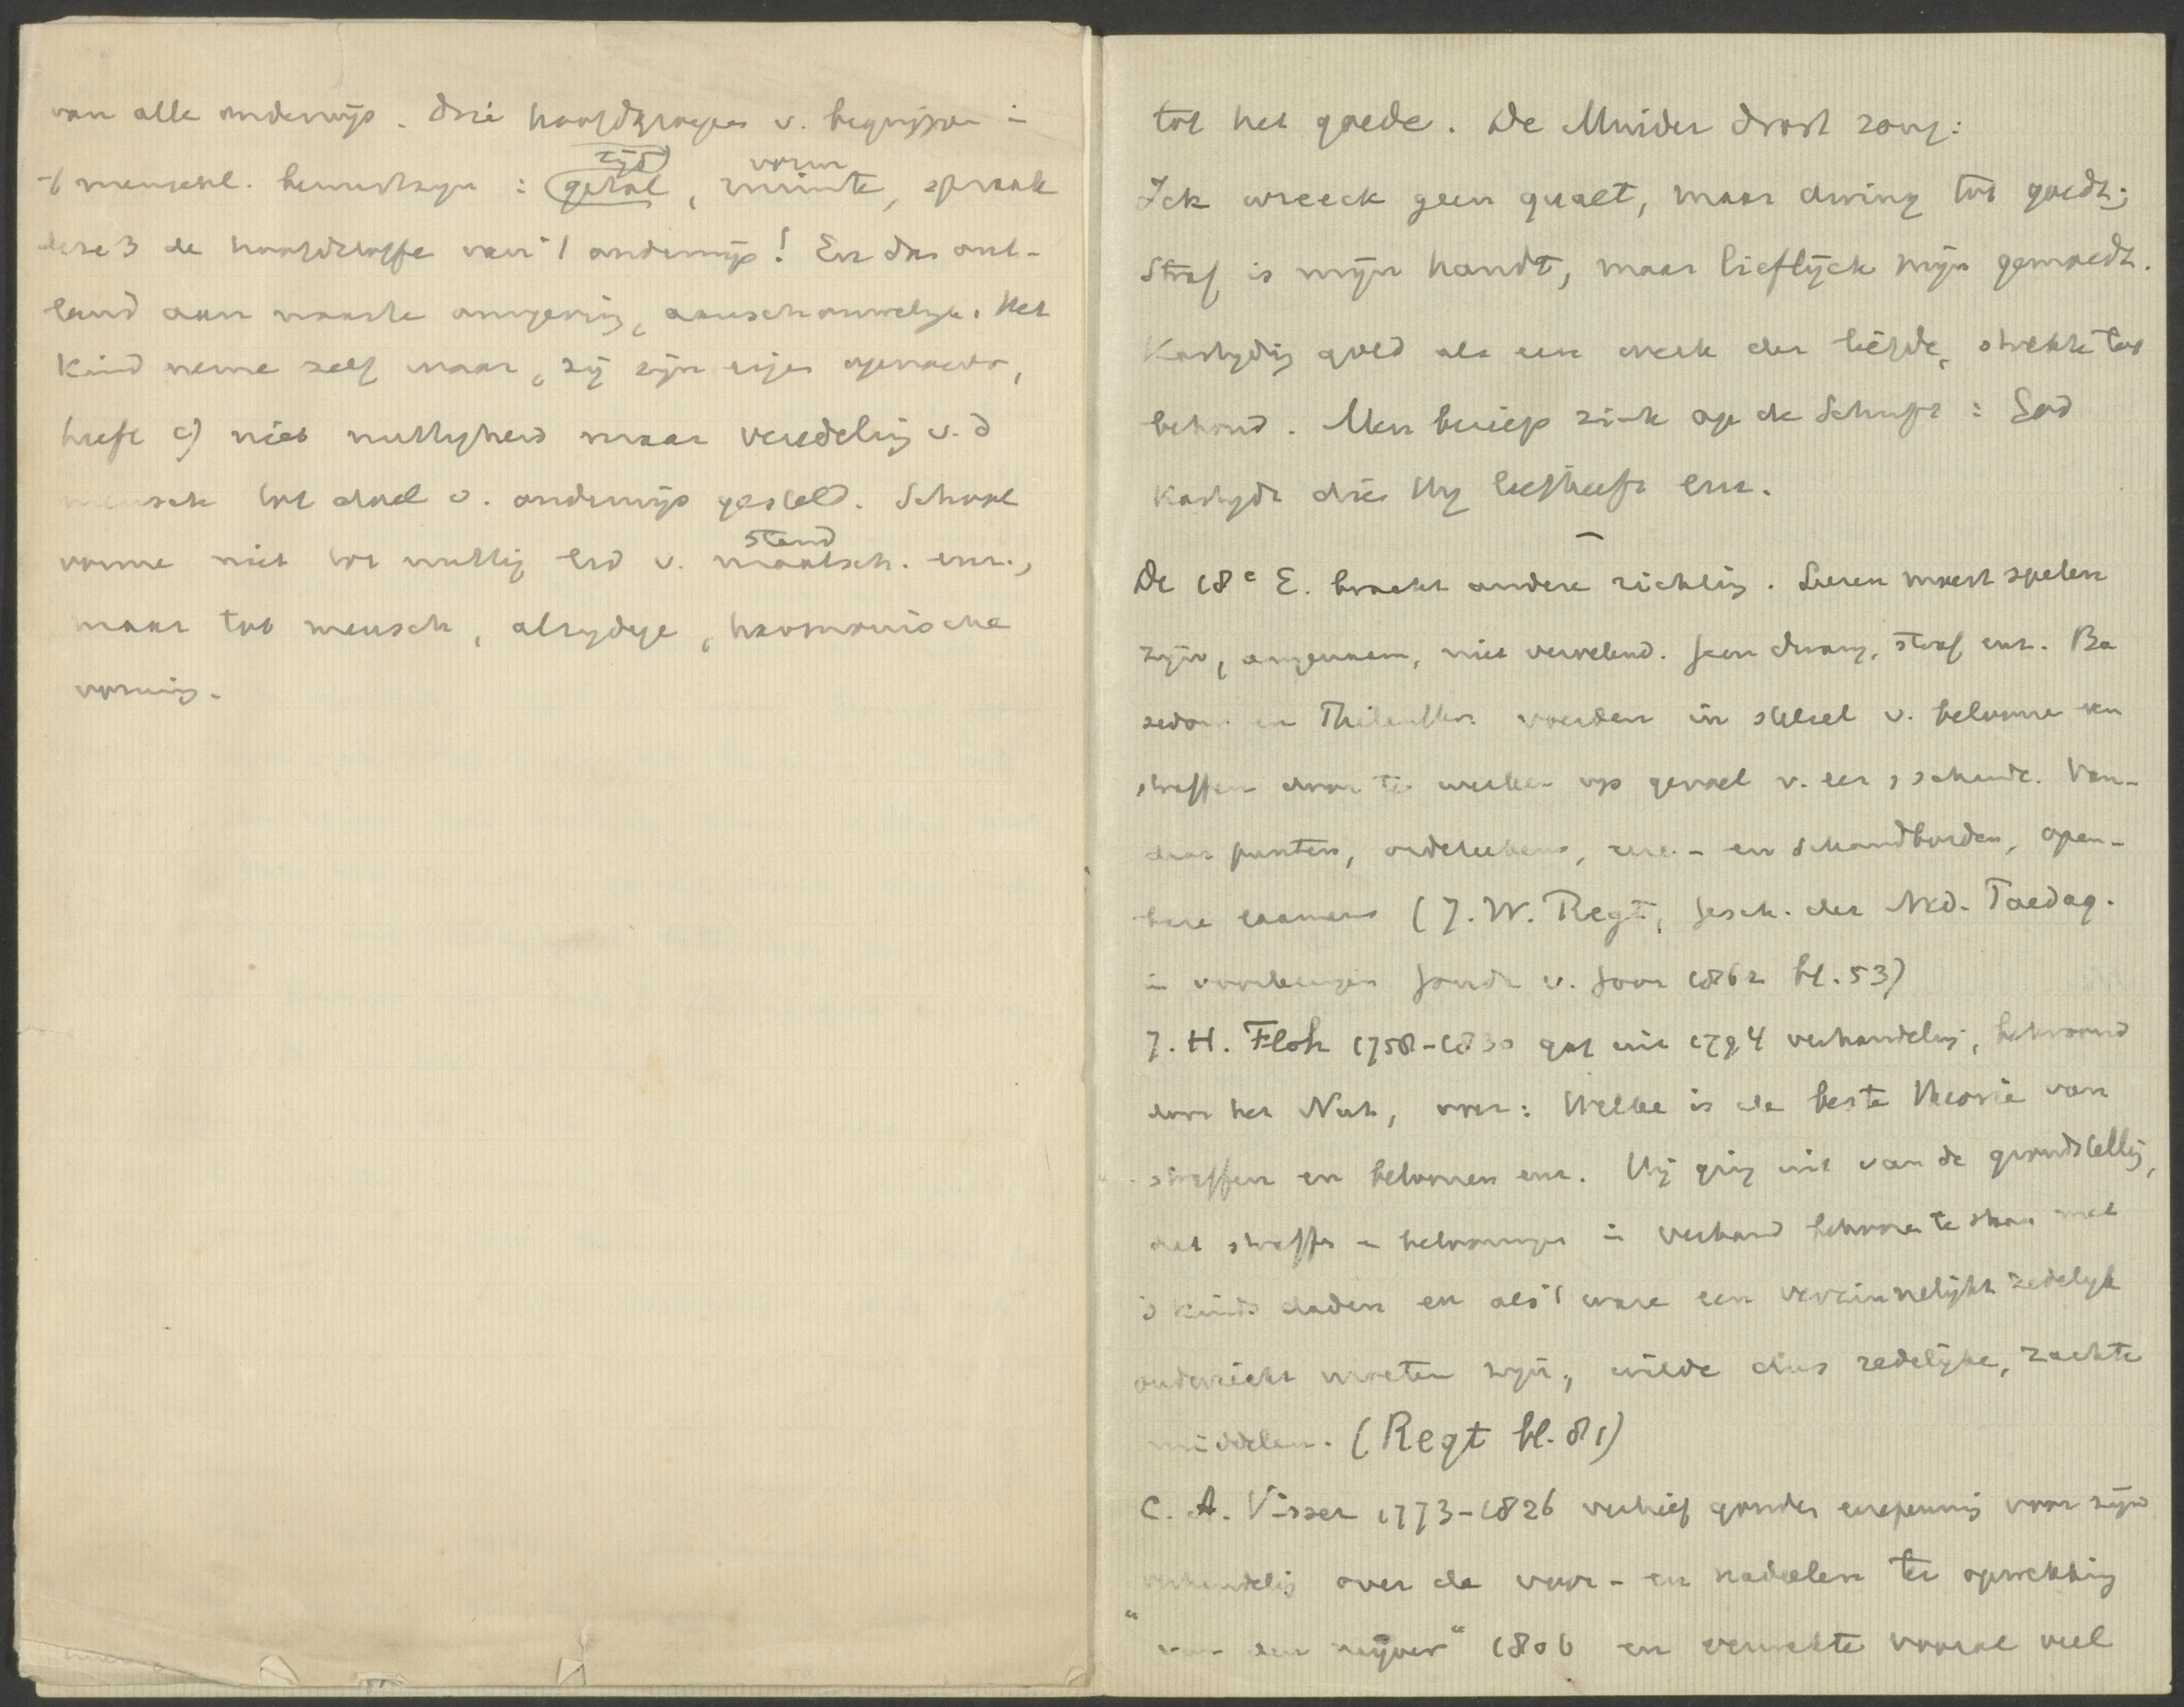 van alle onderwijs. Drie hoofdgroepen v. begrippen in
't menschel. bewustzijn : tijd getal, vorm ruimte, spraak
deze 3 de hoofdstoffe van 't onderwijs! En dan ont-
leend aan naaste omgeving, aanschouwelijk. Het
kind neme zelf waar, zij zijn eigen
heeft c) niet nuttigheid maar veredeling v. d
mensch tot doel v. onderwijs gesteld. School
vorme niet tot nuttig lid v. stand maatsch. enz.,
maar tot mensch, alzijdige, harmonische
vorming.
tot het goede. De Muider Drost zong:
Ick wreeck geen quaet, maar dwing tot goedt;
Straf is mijn handt, maar lieflijck mijn gemoedt.
Kastijding gold als een werk der liefde, strekte tot
behoud. Men beriep zich op de Schrift : God
kastijdt dien Hij liefheeft enz.
De 18e E. bracht andere richting. Leeren moest spelen
zijn, aangenaam, niet vervelend. Geen dwang, straf enz. Ba
sedow en Philantro. voerden in stelsel v. beloonen en
straffen door te werken op gevoel v. eer, schande. Van-
daar punten, ordeteekens, eere- en schandborden, open-
bare examens (J. W. Regt, Gesch. der Ned. Paedag.
in voorlezingen Gouda v. Goor 1862 bl. 53)
J. H. Floh 1758-1830 gaf uit 1794 verhandeling, bekroond
door het Nut, over: Welke is de beste theorie van
straffen en beloonen enz. Hij ging uit van de grondstelling,
dat straffen en belooningen in verband behooren te staan met
's kinds daden en als 't ware een verzinnelijkt zedelijk
onderricht moeten zijn, wilde dus redelijke, zachte
middelen. (Regt bl. 81)
C. A. Visser 1773-1826 verkreeg gouden eerepenning voor zijn
verhandeling over de voor- en nadeelen ter opwekking
"van den naijver" 1806 en verwekte vooral veel